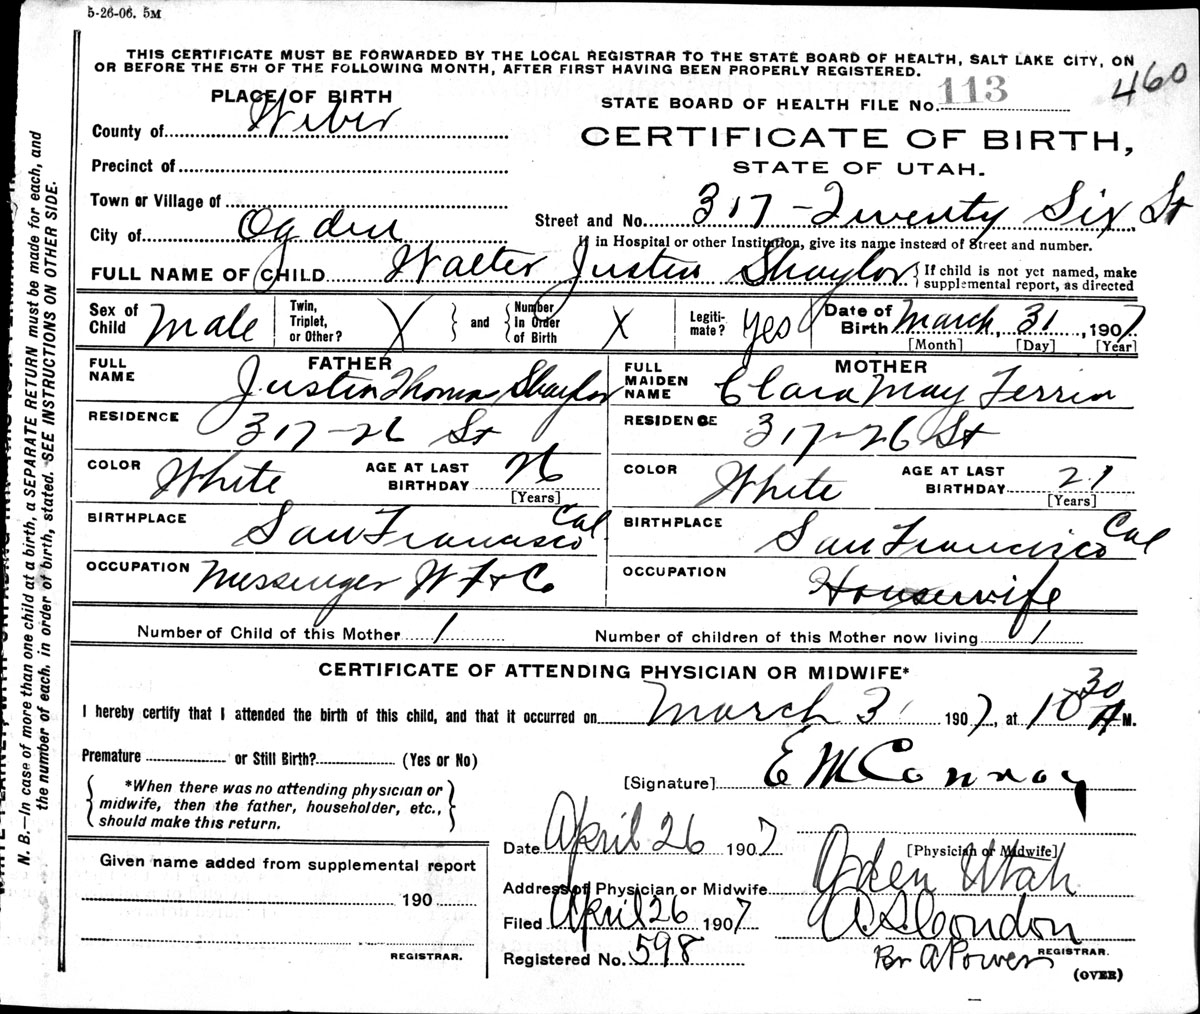 5-26-06. 5M
THIS CERTIFICATE MUST BE FORWARDED BY THE LOCAL REGISTRAR TO THE STATE BOARD OF HEALTH, SALT LAKE CITY, ON
OR BEFORE THE 5TH OF THE FOLLOWING MONTH, AFTER FIRST HAVING BEEN PROPERLY REGISTERED.
PLACE OF BIRTH
STATE BOARD OF HEALTH FILE No. 113 460
County of Weber
CERTIFICATE OF BIRTH,
STATE OF UTAH.
Precinct of
Town or Village of
Street and No. 317 - Twenty Six St
City of Ogden
If in Hospital or other Institution, give its name instead of Street and number.
FULL NAME OF CHILD Walter Justin Shaylor { If child is not yet named, make
supplemental report, as directed
Sex of Child Male Twin, Triplet, or Other? X } and { Number In Order of Birth X Legiti-mate? yes Date of Birth March, 31, 1907
[Month] [Day] [Year]
FATHER MOTHER
FULL NAME Justin Thomas Shaylor FULL MAIDEN NAME Clara May Ferrin
RESIDENCE 317-26 St RESIDENCE 317-26 St
COLOR White AGE AT LAST BIRTHDAY 26 [Years] COLOR White AGE AT LAST BIRTHDAY 21 [Years]
BIRTHPLACE San Francisco Cal BIRTHPLACE San Francisco Cal
OCCUPATION Messenger W F & Co OCCUPATION Housewife
Number of Child of this Mother 1 Number of children of this Mother now living 1
CERTIFICATE OF ATTENDING PHYSICIAN OR MIDWIFE*
I hereby certify that I attended the birth of this child, and that it occurred on March 31 1907, at 10 30 A M.
Premature or Still Birth? (Yes or No)
[Signature] E M Conroy
{ *When there was no attending physician or
midwife, then the father, householder, etc.,
should make this return. }
Date April 26 1907
[Physician or Midwife]
Given name added from supplemental report
190
REGISTRAR.
Address of Physician or Midwife Ogden Utah
Filed April 26 1907 A S Condon
REGISTRAR.
Registered No. 598 Pr A Power
(OVER)
N. B.—In case of more than one child at a birth, a SEPARATE RETURN must be made for each, and
the number of each, in order of birth, stated. SEE INSTRUCTIONS ON OTHER SIDE.